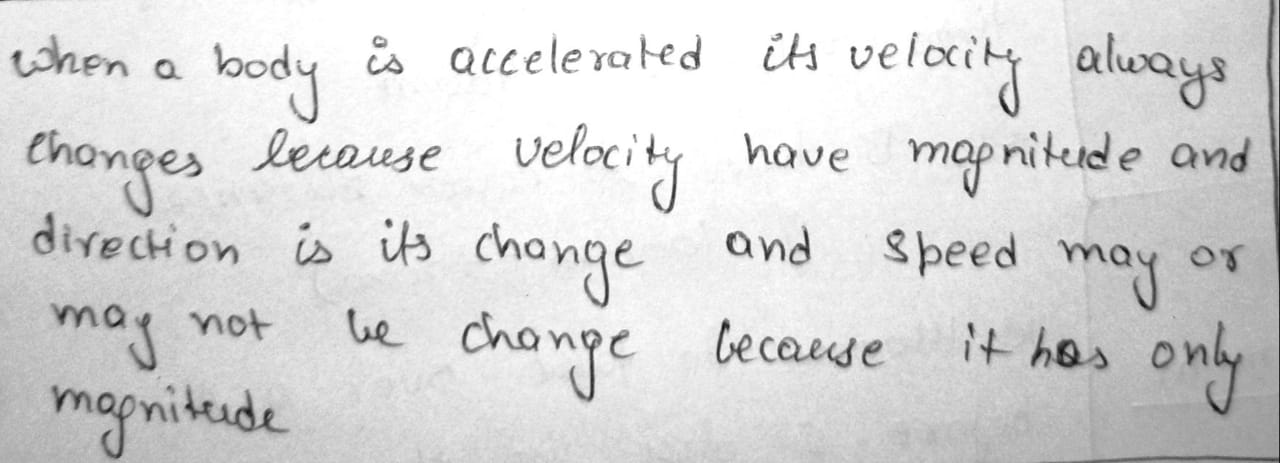 when a body is accelerated its velocity always
changes because velocity have magnitude and
direction is its change and speed may or
may not be change because it has only
magnitude